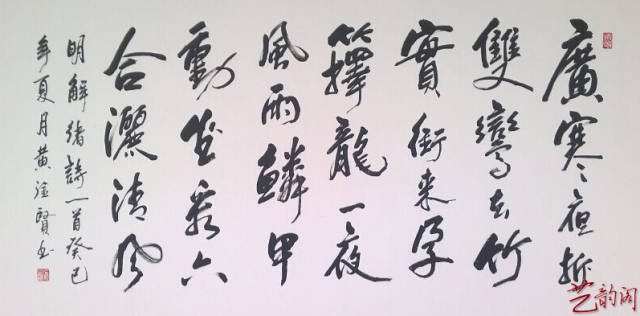 廣寒夜折
雙鸞去竹
實銜來孕
籜龍一夜
風雨鱗甲
動坐看六
合灑清風
明解縉詩一首癸巳
年夏月黄賢书
艺韵阁